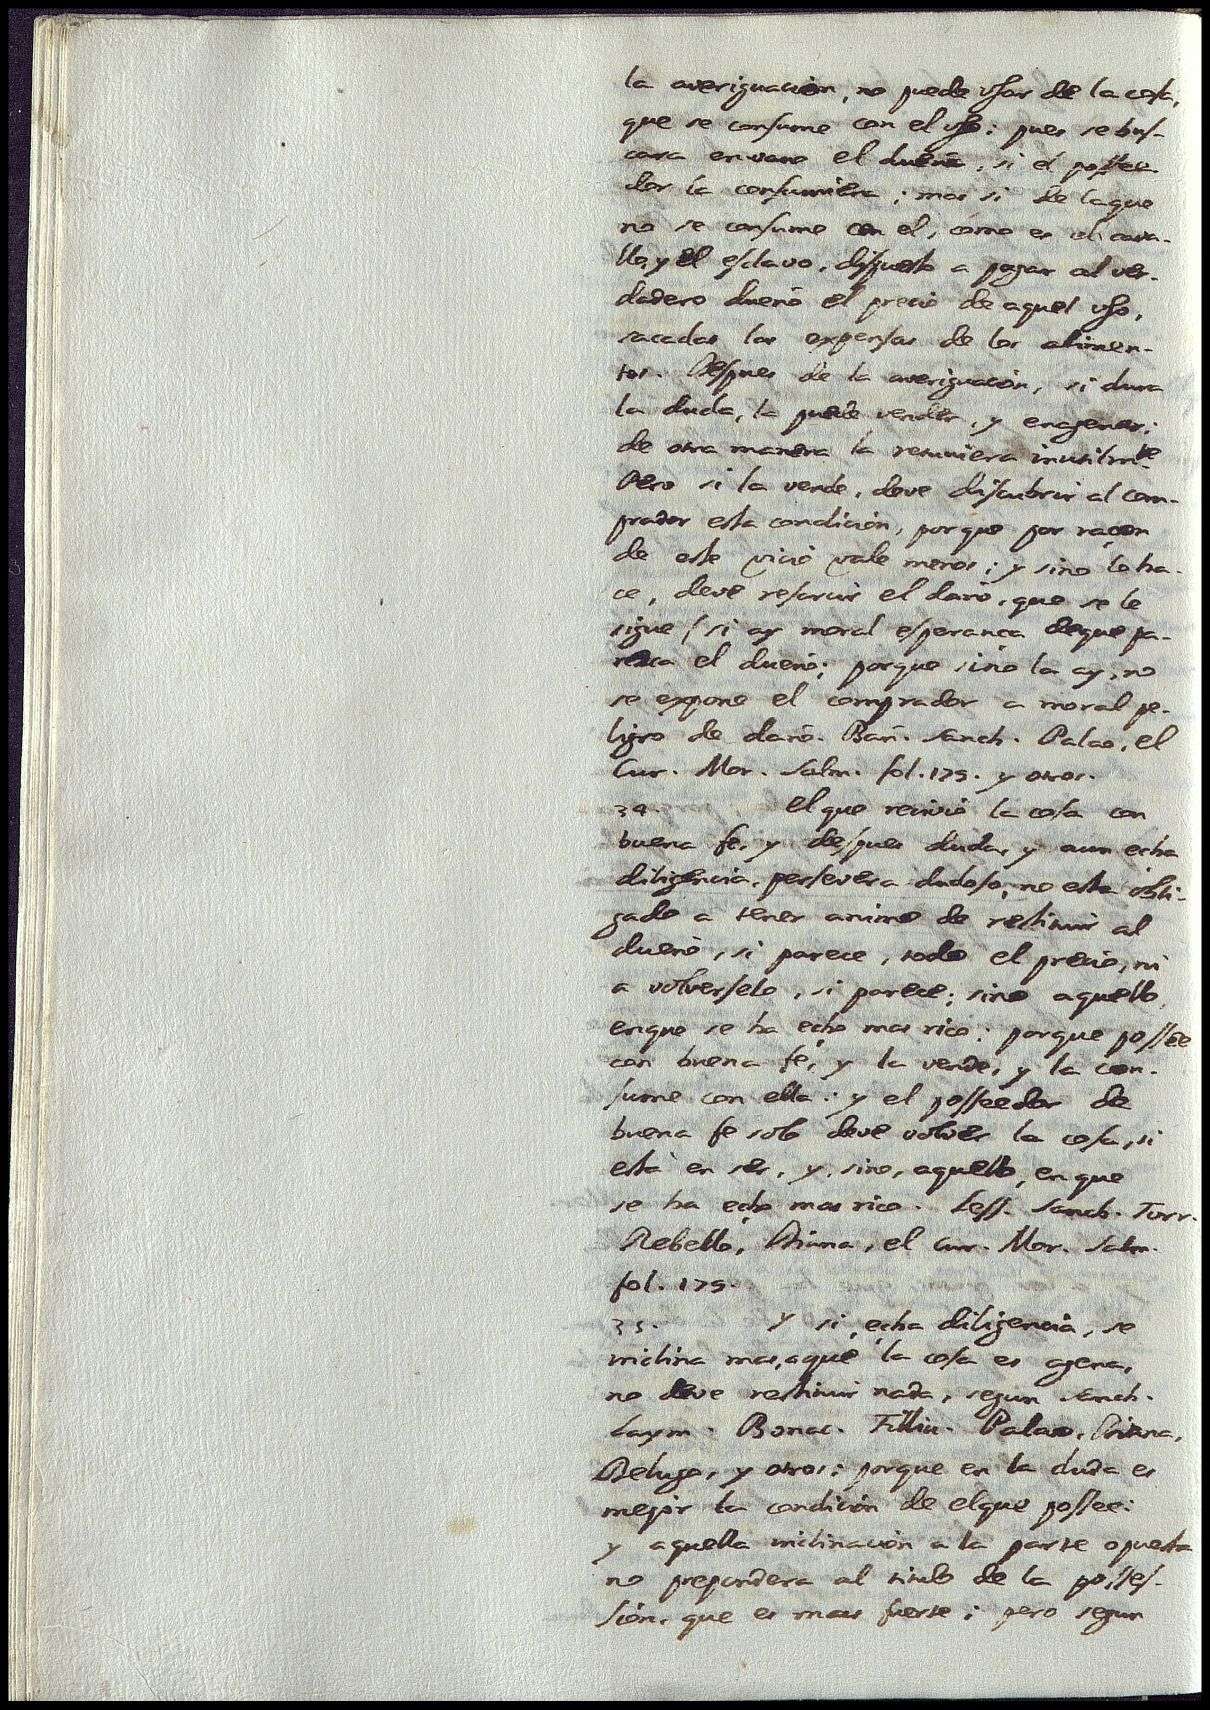 la averiguacion, no puede usar de la cosa,
que se consume con el uso: pues se bus-
cara en vano el dueño, si el possee
dor la consumiera; mas si de la que
no se consume con el, como es el cava-
llo, y el esclavo, dispuesto a pagar al ver-
dadero dueño el precio de aquel uso,
sacadas las expensas de los alimen-
tos. Despues de la averiguacion, si dura
la duda, la puede vender, y enagenar;
de otra manera la retuviera inutilmte.
Pero si la vende, deve discubrir al com-
prador esta condicion, porque por raçon
de este vicio vale menos; y sino lo ha-
ce, deve resarcir el daño, que se le
sigue, si ay moral esperança de que pa-
resca el dueño; porque sino la ay, no
se expone el comprador a moral pe-
ligro de daño. Bañ. Sanch. Palao, el
Cur. Mor. Salm. fol. 179. y otros.
34. El que recivio la cosa con
buena fe, y despues duda, y aun echa
diligencia, persevera dudoso, no esta obli-
gado a tener animo de restituir al
dueño, si parece, todo el precio, ni
a volverselo, si parece; sino aquello,
en que se ha echo mas rico: porque possee
con buena fe, y la vende, y la con-
sume con ella: y el posseedor de
buena fe solo deve volver la cosa, si
está en ser, y, sino, aquello, en que
se ha echo mas rico. Less. Sanch. Turr.
Rebello, Diana, el Cur. Mor. Salm.
fol. 179.
35. Y si, echa diligencia, se
inclina mas, a que la cosa es agena,
no deve restituir nada, segun Sanch.
Laym. Bonac. Filliu. Palao, Diana,
Beluga, y otros: porque en la duda es
mejor la condicion de el que possee:
y aquella inclinacion a la parte opuesta
no prepondera al titulo de la posses-
sion, que es mas fuerte; pero segun